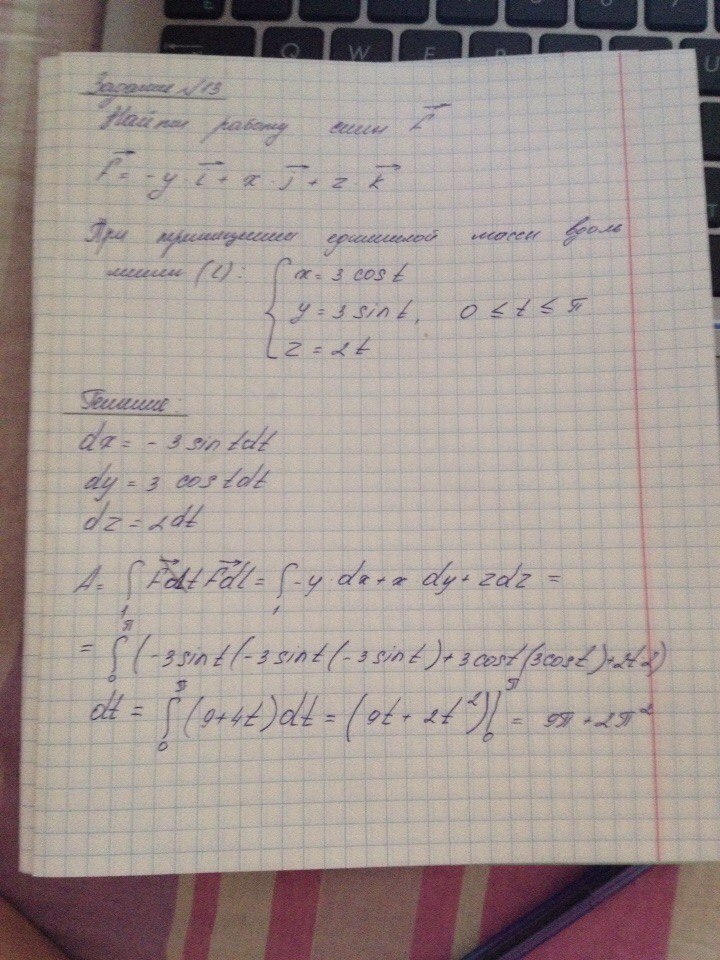 Задание №13
Найти работу силы F
F = -y · i + x · j + z · k
При перемещении единичной массы вдоль
линии (L): { x = 3 cos t
y = 3 sin t, 0 ≤ t ≤ π
z = 2t
Решение:
dx = - 3 sin t dt
dy = 3 cos t dt
dz = 2 dt
A = ∫ F dl = ∫ -y · dx + x dy + z dz =
= ∫₀^π (-3 sin t (-3 sin t (-3 sin t) + 3 cos t (3 cos t) + 2t 2)
dt = ∫₀^π (9 + 4t) dt = (9t + 2t²)|₀^π = 9π + 2π²